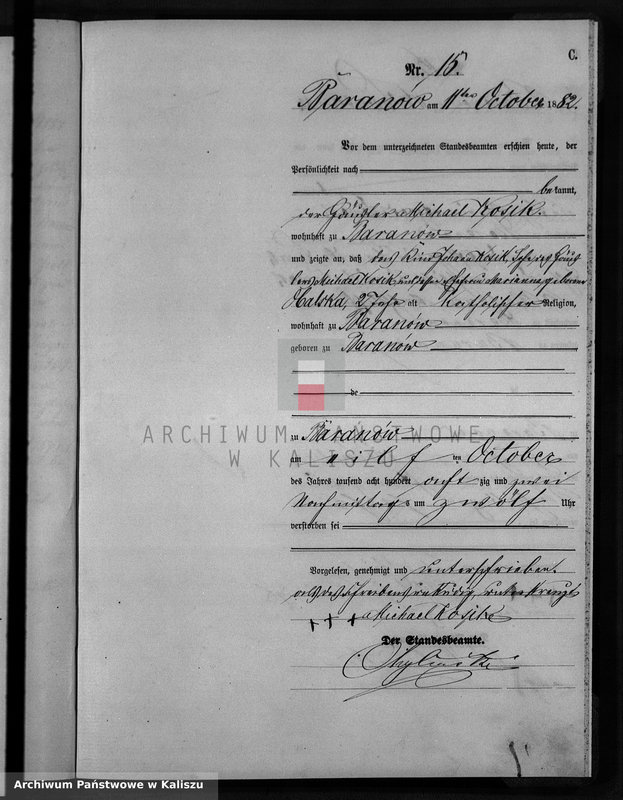 C.
Nr. 15.
Baranów am 11ten October 1882.
Vor dem unterzeichneten Standesbeamten erschien heute, der
Persönlichkeit nach
bekannt,
der Häusler Michael Kosik.
wohnhaft zu Baranów
und zeigte an, daß das Kind Johann Kosik, Sohn des Häus
lers Michael Kosik und dessen Ehefrau Marianna geborene
Halska, 2 Jahr alt Katholischer Religion,
wohnhaft zu Baranów
geboren zu Baranów
de
zu Baranów
am eilf ten October
des Jahres tausend acht hundert acht zig und zwei
Nachmittags um zwölf Uhr
verstorben sei
Vorgelesen, genehmigt und unterschrieben
als des Schreibens unkundig, unterkreuzt
+ + + Michael Kosik
Der Standesbeamte.
ARCHIWUM PAŃSTWOWE
W KALISZU
Archiwum Państwowe w Kaliszu